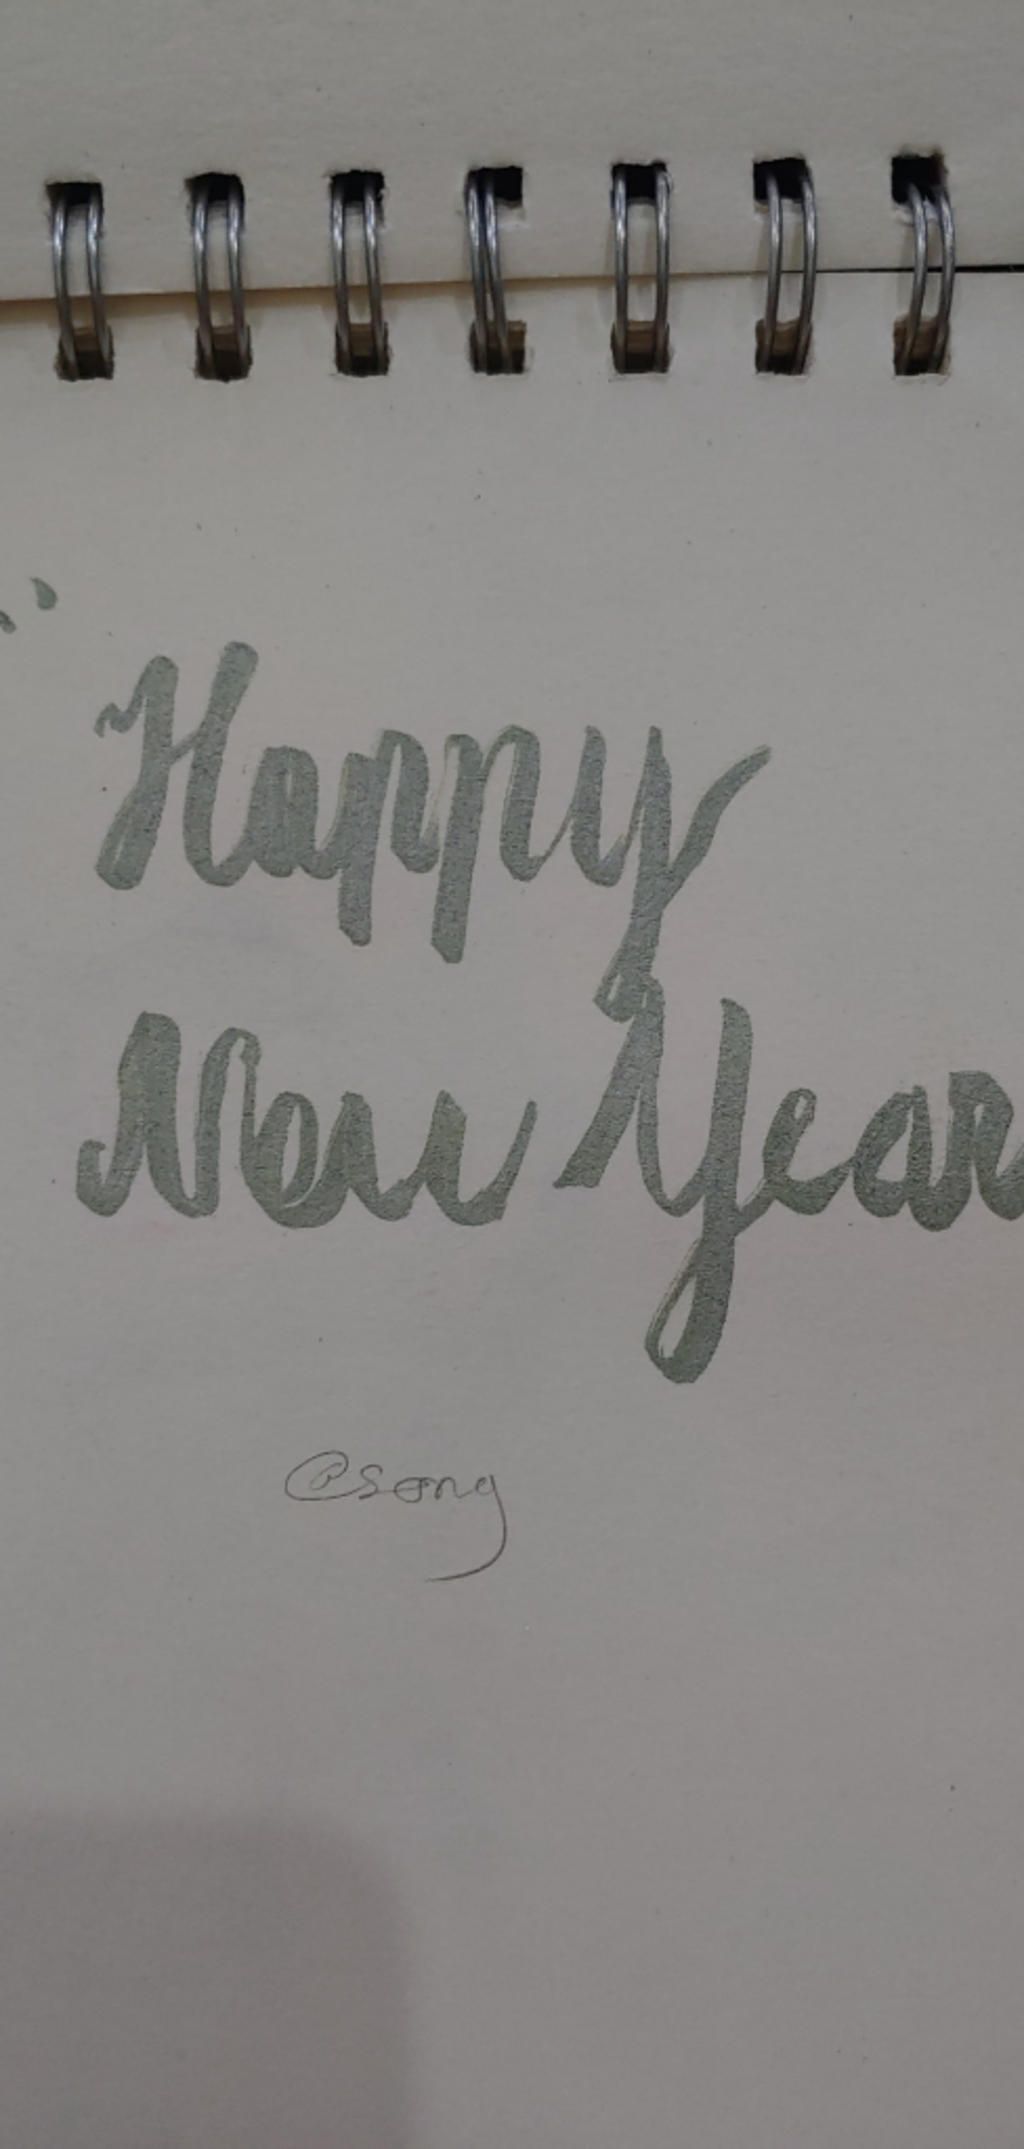 Happy
New Year
@song